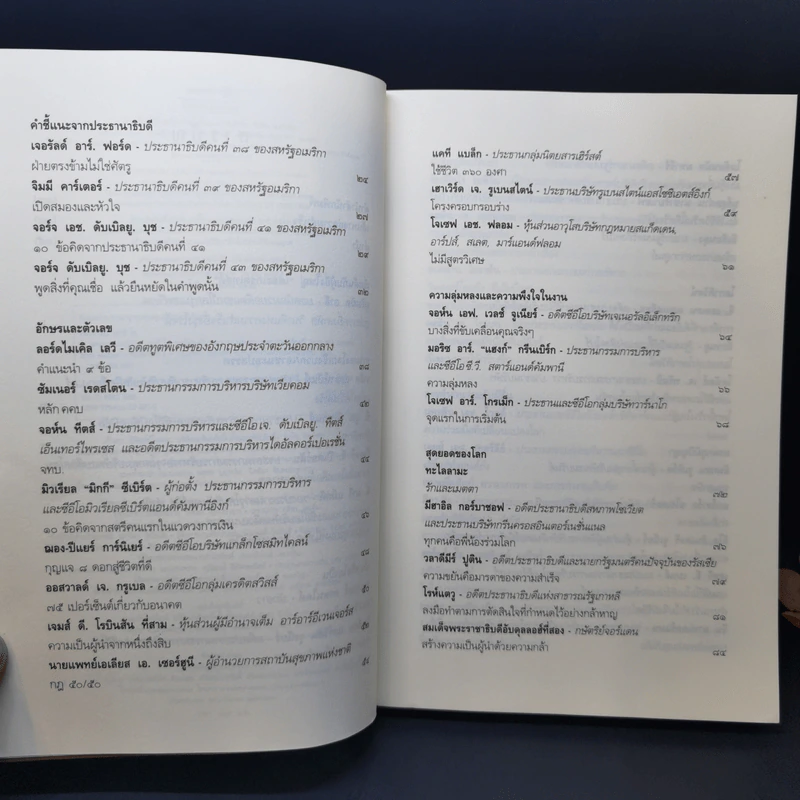 คำชี้แนะจากประธานาธิบดี
เจอรัลด์ อาร์. ฟอร์ด - ประธานาธิบดีคนที่ ๓๘ ของสหรัฐอเมริกา
ฝ่ายตรงข้ามไม่ใช่ศัตรู ๒๔
จิมมี คาร์เตอร์ - ประธานาธิบดีคนที่ ๓๙ ของสหรัฐอเมริกา
เปิดสมองและหัวใจ ๒๗
จอร์จ เอช. ดับเบิลยู. บุช - ประธานาธิบดีคนที่ ๔๑ ของสหรัฐอเมริกา
๑๐ ข้อคิดจากประธานาธิบดีคนที่ ๔๑ ๒๙
จอร์จ ดับเบิลยู. บุช - ประธานาธิบดีคนที่ ๔๓ ของสหรัฐอเมริกา
พูดสิ่งที่คุณเชื่อ แล้วยืนหยัดในคำพูดนั้น ๓๒
อักษรและตัวเลข
ลอร์ดไมเคิล เลวี - อดีตทูตพิเศษของอังกฤษประจำตะวันออกกลาง
คำแนะนำ ๙ ข้อ ๓๘
ซัมเนอร์ เรดสโตน - ประธานกรรมการบริหารบริษัทเวียคอม
หลัก คคบ ๔๒
จอห์น ทีตส์ - ประธานกรรมการบริหารและซีอีโอ เจ. ดับเบิลยู. ทีตส์
เอ็นเทอร์ไพรเซส และอดีตประธานกรรมการบริหารไดอัลคอร์เปอเรชั่น
จทบ. ๔๔
มิวเรียล "มิกกี" ซีเบิร์ต - ผู้ก่อตั้ง ประธานกรรมการบริหาร
และซีอีโอมิวเรียลซีเบิร์ตแอนด์คัมพานีอิงก์
๑๐ ข้อคิดจากสตรีคนแรกในแวดวงการเงิน ๔๖
ฌอง-ปีแยร์ การ์นิเยร์ - อดีตซีอีโอบริษัทแกล็กโซสมิทไคลน์
กุญแจ ๘ ดอกสู่ชีวิตที่ดี ๔๘
ออสวาลด์ เจ. กรูเบล - อดีตซีอีโอกลุ่มเครดิตสวิสส์
๗๕ เปอร์เซ็นต์เกี่ยวกับอนาคต ๕๐
เจมส์ ดี. โรบินสัน ที่สาม - หุ้นส่วนผู้มีอำนาจเต็ม อาร์อาร์อีเวนเจอร์ส
ความเป็นผู้นำจากหนึ่งถึงสิบ
นายแพทย์เอเลียส เอ. เซอร์ฮูนี - ผู้อำนวยการสถาบันสุขภาพแห่งชาติ
กฎ ๕๐/๕๐
แคที แบล็ก - ประธานกลุ่มนิตยสารเฮิร์สต์
ใช้ชีวิต ๓๖๐ องศา ๕๗
เฮาเวิร์ด เจ. รูเบนสไตน์ - ประธานบริษัทรูเบนสไตน์แอสโซซิเอตส์อิงก์
โครงครอบกรอบร่าง ๕๙
โจเซฟ เอช. ฟลอม - หุ้นส่วนอาวุโสบริษัทกฎหมายสแก็ดเดน,
อาร์ปส์, สเลต, มาร์แอนด์ฟลอม
ไม่มีสูตรวิเศษ ๖๑
ความลุ่มหลงและความพึงใจในงาน
จอห์น เอฟ. เวลช์ จูเนียร์ - อดีตซีอีโอบริษัทเจเนอรัลอีเล็กทริก
บางสิ่งที่ขับเคลื่อนคุณจริงๆ ๖๔
มอริซ อาร์. "แฮงก์" กรีนเบิร์ก - ประธานกรรมการบริหาร
และซีอีโอ ซี.วี. สตาร์แอนด์คัมพานี
ความลุ่มหลง ๖๖
โจเซฟ อาร์. โกรเม็ก - ประธานและซีอีโอกลุ่มบริษัทวาร์นาโก
จุดแรกในการเริ่มต้น ๖๘
สุดยอดของโลก
ทะไลลามะ
รักและเมตตา ๗๒
มีฮาอิล กอร์บาชอฟ - อดีตประธานาธิบดีสหภาพโซเวียต
และประธานบริษัทกรีนครอสอินเตอร์เนชั่นแนล
ทุกคนคือพี่น้องร่วมโลก ๗๖
วลาดีมีร์ ปูติน - อดีตประธานาธิบดีและนายกรัฐมนตรีคนปัจจุบันของรัสเซีย
ความขยันคือมารดาของความสำเร็จ ๗๙
โรห์แตวู - อดีตประธานาธิบดีแห่งสาธารณรัฐเกาหลี
ลงมือทำตามการตัดสินใจที่กำหนดไว้อย่างกล้าหาญ ๘๑
สมเด็จพระราชาธิบดีอับดุลลอฮ์ที่สอง - กษัตริย์จอร์แดน
สร้างความเป็นผู้นำด้วยความกล้า ๘๔